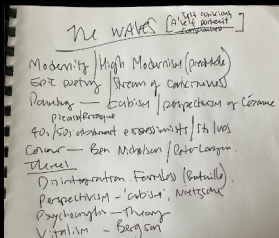 The WAVES [A self conscious
self portrait
Modernity / High Modernism (
Epic poetry / Stream of Consciousness
Painting — Cubism / perspectivism of Cézanne
Picasso/Braque
40s/50s abstract expressionists /
Colour — Ben Nicholson /
Themes
Disintegration. Formless (Bataille).
Perspectivism - 'cubism', Nietzsche
Psychoanalysis — Theory
Vitalism - Bergson